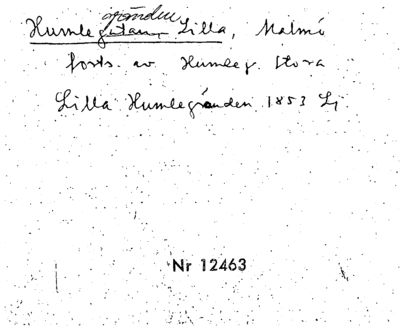 gränden
Humlegatan, Lilla, Malmö
forts. av Humleg. Stora
Lilla Humlegränden 1853 Lj.
Nr 12463